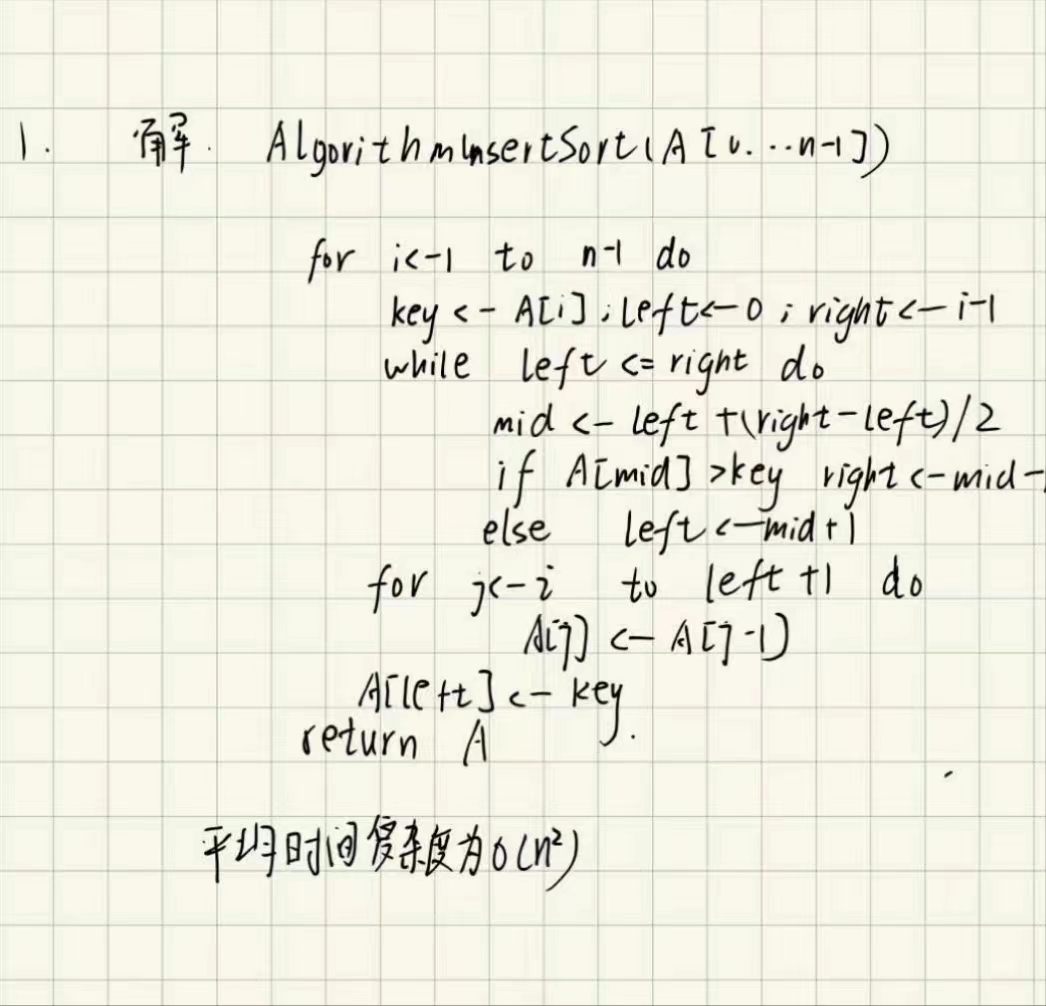 1. 解. AlgorithmInsertSort(A[0...n-1])
for i<-1 to n-1 do
key <- A[i]; left<-0; right<-i-1
while left <= right do
mid <- left +(right-left)/2
if A[mid] >key right <-mid-
else left <-mid+1
for j<-i to left +1 do
A[j] <- A[j-1]
A[left] <- key
return A.
平均时间复杂度为O(n²)